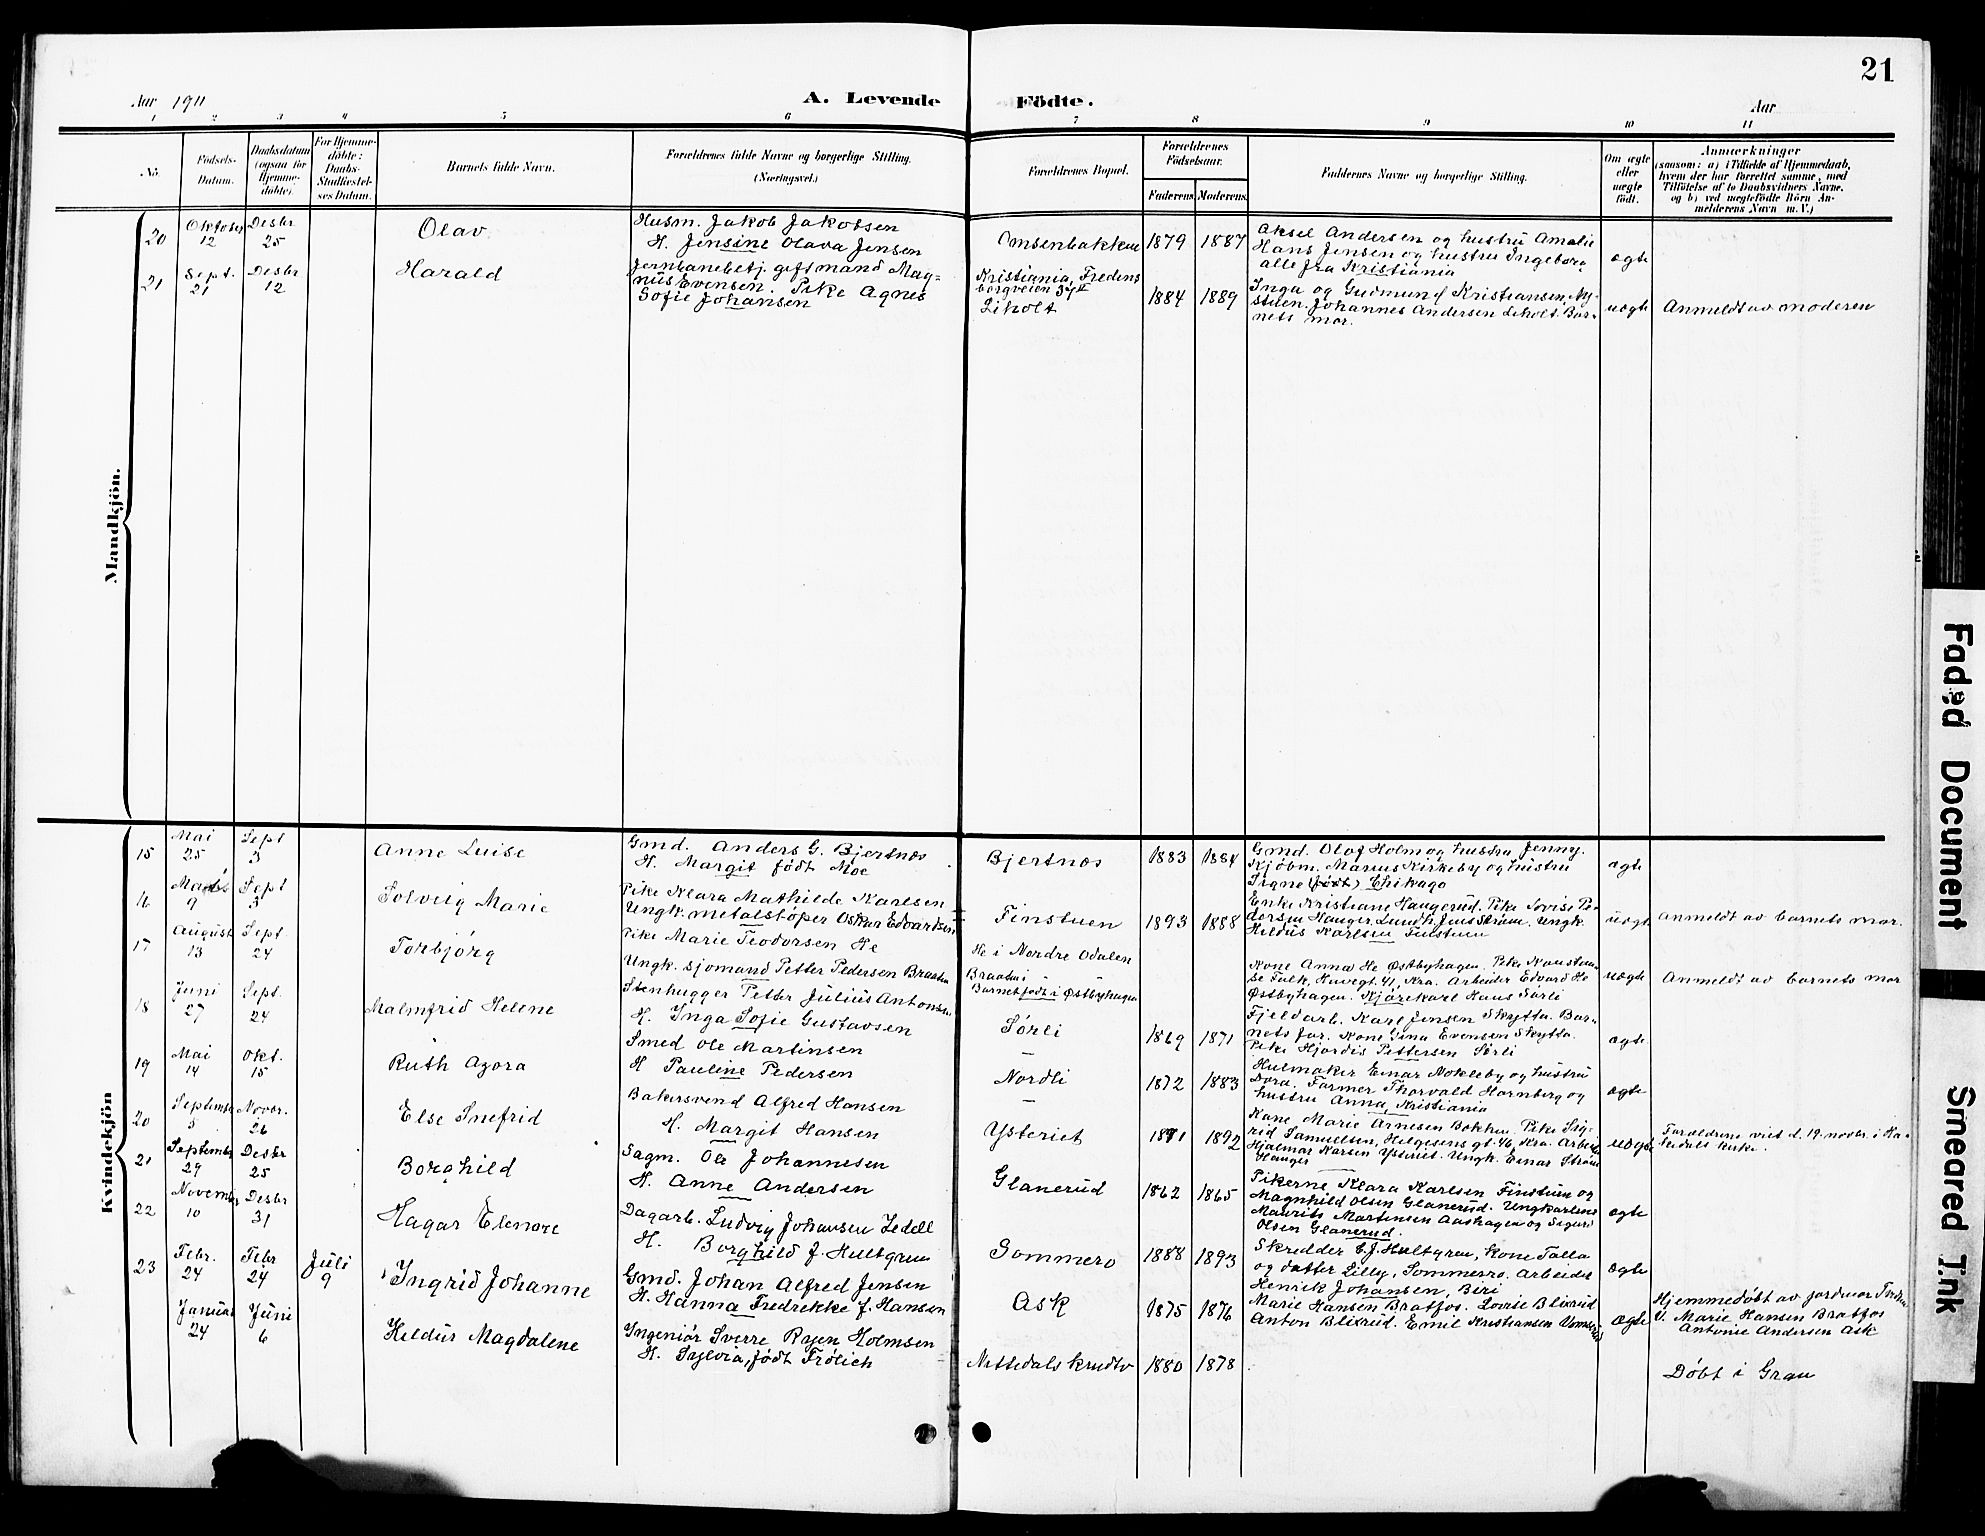 21
Aar 1911
A. Levende Födte.
Aar
1 2 3 4 5 6 7 8 9 10 11
No.
Födsels-
Datum.
Daabsdatum
(ogsaa for
Hjemme-
döbte).
For Hjemme-
döbte:
Daabs-
Stadfæstel-
ses Datum.
Barnets fulde Navn.
Forældrenes fulde Navne og borgerlige Stilling.
(Næringsvei.)
Forældrenes Bopæl.
Forældrenes
Födselsaar.
Faderens
Moderens
Faddernes Navne og borgerlige Stilling.
Om ægte
eller
uægte
födt.
Anmærkninger
(saasom: a) i Tilfælde af Hjemmedaab,
hvem der har forrettet samme, med
Tilföielse af to Daabsvidners Navne.
og b) ved uægtefödte Börn An-
melderens Navn m. V.)
Mandkjön.
20
Oktober
12
Desbr
25
Olav
Husm. Jakob Jakobsen
H. Jensine Olava Jensen
Omsenbakken
1879
1887
Aksel Andersen og hustru Amalie
Hans Jensen og hustru Ingeborg
alle fra Kristiania
ægte
21
Sept.
21
Desbr
12
Harald
Jernbanebetj. gift mand Mag-
nus Evensen. Pike Agnes
Sofie Johansen
Kristiania, Fredens
borgveien 37 II
Liholt
1884
1889
Inga og Gudmund Kristiansen, Ny-
stuen. Johannes Andersen Liholt. Bar-
nets mor.
uægte
Anmeldt av moderen
Kvindekjön
15
Mai
25
Sept
3
Anne Luise
Gmd. Anders G. Bjertnæs
H. Margit født Moe
Bjertnæs
1883
1884
Gmd. Olof Holm og hustru Jenny.
Kjøbm. Marius Kirkeby og hustru
Signe (født) Chikago
ægte
16
9
Sept
3
Solveig Marie
Pike Klara Mathilde Karlsen
Ungk. metalstøper Oskar Edvardsen
Finstuen
1893
1888
Enke Kristiane Haugerud. Pike Lovise Pe-
dersen Hauger Lund. Jens Strøm. Ungk.
Hildus Karlsen Finstuen
uægte
Anmeldt av barnets mor.
17
August
13
Sept.
24
Torbjørg
Pike Marie Teodorsen He
Ungk. sjømand Petter Pedersen Braaten
He i Nordre Odalen
Braaten i
Barnet født i Østbyhagen
Kone Anna He Østbyhagen. Pike
Kra. Arbeider Edvard He
Østbyhagen. Kjørekarl Hans Sørli
uægte
Anmeldt av barnets mor
18
Juni
27
Sept.
24
Malmfrid Helene
Stenhugger Petter Julius Antonsen
H. Inga Sofie Gustavsen
Sørli
1869
1871
Fjeldarb. Karl Jensen Skytta. Bar-
nets far. Kone Gina Evensen Skytta.
Pike Hjørdis Pettersen Sørli
ægte
19
Mai
14
Okt.
15
Ruth Agora
Smed Ole Martinsen
H Pauline Pedersen
Nordli
1872
1883
Hulmaker Einar Nokleby og hustru
Dora. Former Thorvald Hornberg og
hustru Anna, Kristiania
ægte
20
September
5
Novbr.
26
Else Snefrid
Bakersvend Alfred Hansen
H. Margit Hansen
Ysteriet
1892
Kone Marie Arnesen Bakken. Pike Sig-
rid Samuelsen, Helgesens gt. 46, Kra. Arbeider
Hjalmar Karsen Ysteriet. Ungk. Einar Strøm
Hauger
uægte
Forældrene viet d. 19. novbr. i Ha-
kedals kirke.
21
September
29
Desbr
25
Borghild
Sagm. Ole Johannesen
H. Anne Andersen
Glanerud
1862
1865
Pikerne Klara Karlsen Finstuen og
Magnhild Olsen Glanerud. Ungkarlene
Maurits Martinsen Aashagen og Sigurd
Olsen Glanerud.
ægte
22
November
10
Desbr
31
Hagar Elenore
Dagarb. Ludvig Johansen Zedell
H. Borghild f. Hultgren
Sommero
1888
1893
Skrædder C. J. Hultgren, kone Talla
og datter Lilly, Sommerro. Arbeider
Henrik Johansen, Biri
ægte
23
Febr.
24
Febr
24
Juli
9
Ingrid Johanne
Gmd. Johan Alfred Jensen
H. Hanna Fredrekke f. Hansen
Ask
1875
1876
Marie Hansen Bratfos. Lovise Blixrud
Anton Blixrud. Emil Kristiansen
ægte
Hjemmedøbt av jordmor
V. Marie Hansen Bratfos
Antonie Andersen Ask
Januar
24
Juni
6
Heldur Magdalene
Ingeniør Sverre Ryen Holmsen
H. Sylvia, født Frølich
Nittedals krudtv
1880
1878
Døbt i Gran
Faded Document
Smeared Ink